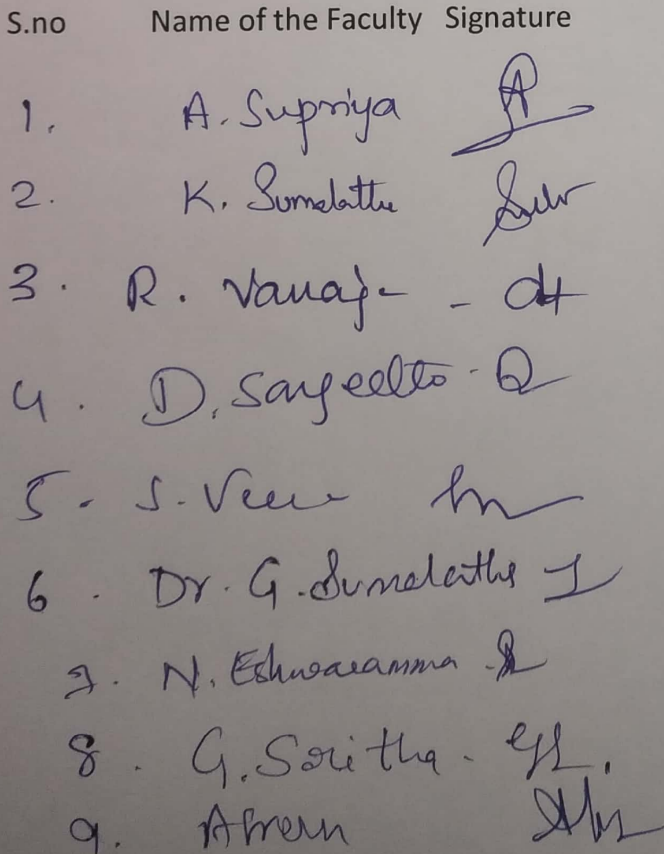 S.no Name of the Faculty Signature
1. A. Supriya
2. K. Sumalatha
3. R. Vanaja -
4. D. Sangeetha -
5. S. Veena
6. Dr. G. Sumalatha
7. N. Eshwaramma
8. G. Saritha -
9. Afreen